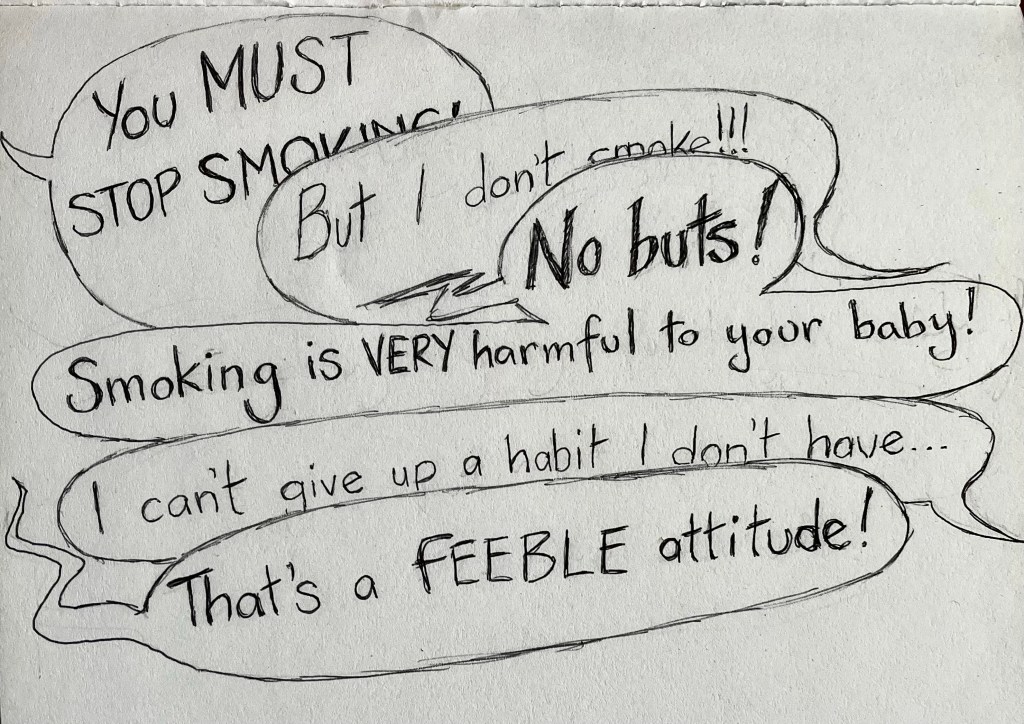 You MUST
STOP SMOKING!
But I don't smoke!!!
No buts!
Smoking is VERY harmful to your baby!
I can't give up a habit I don't have...
That's a FEEBLE attitude!